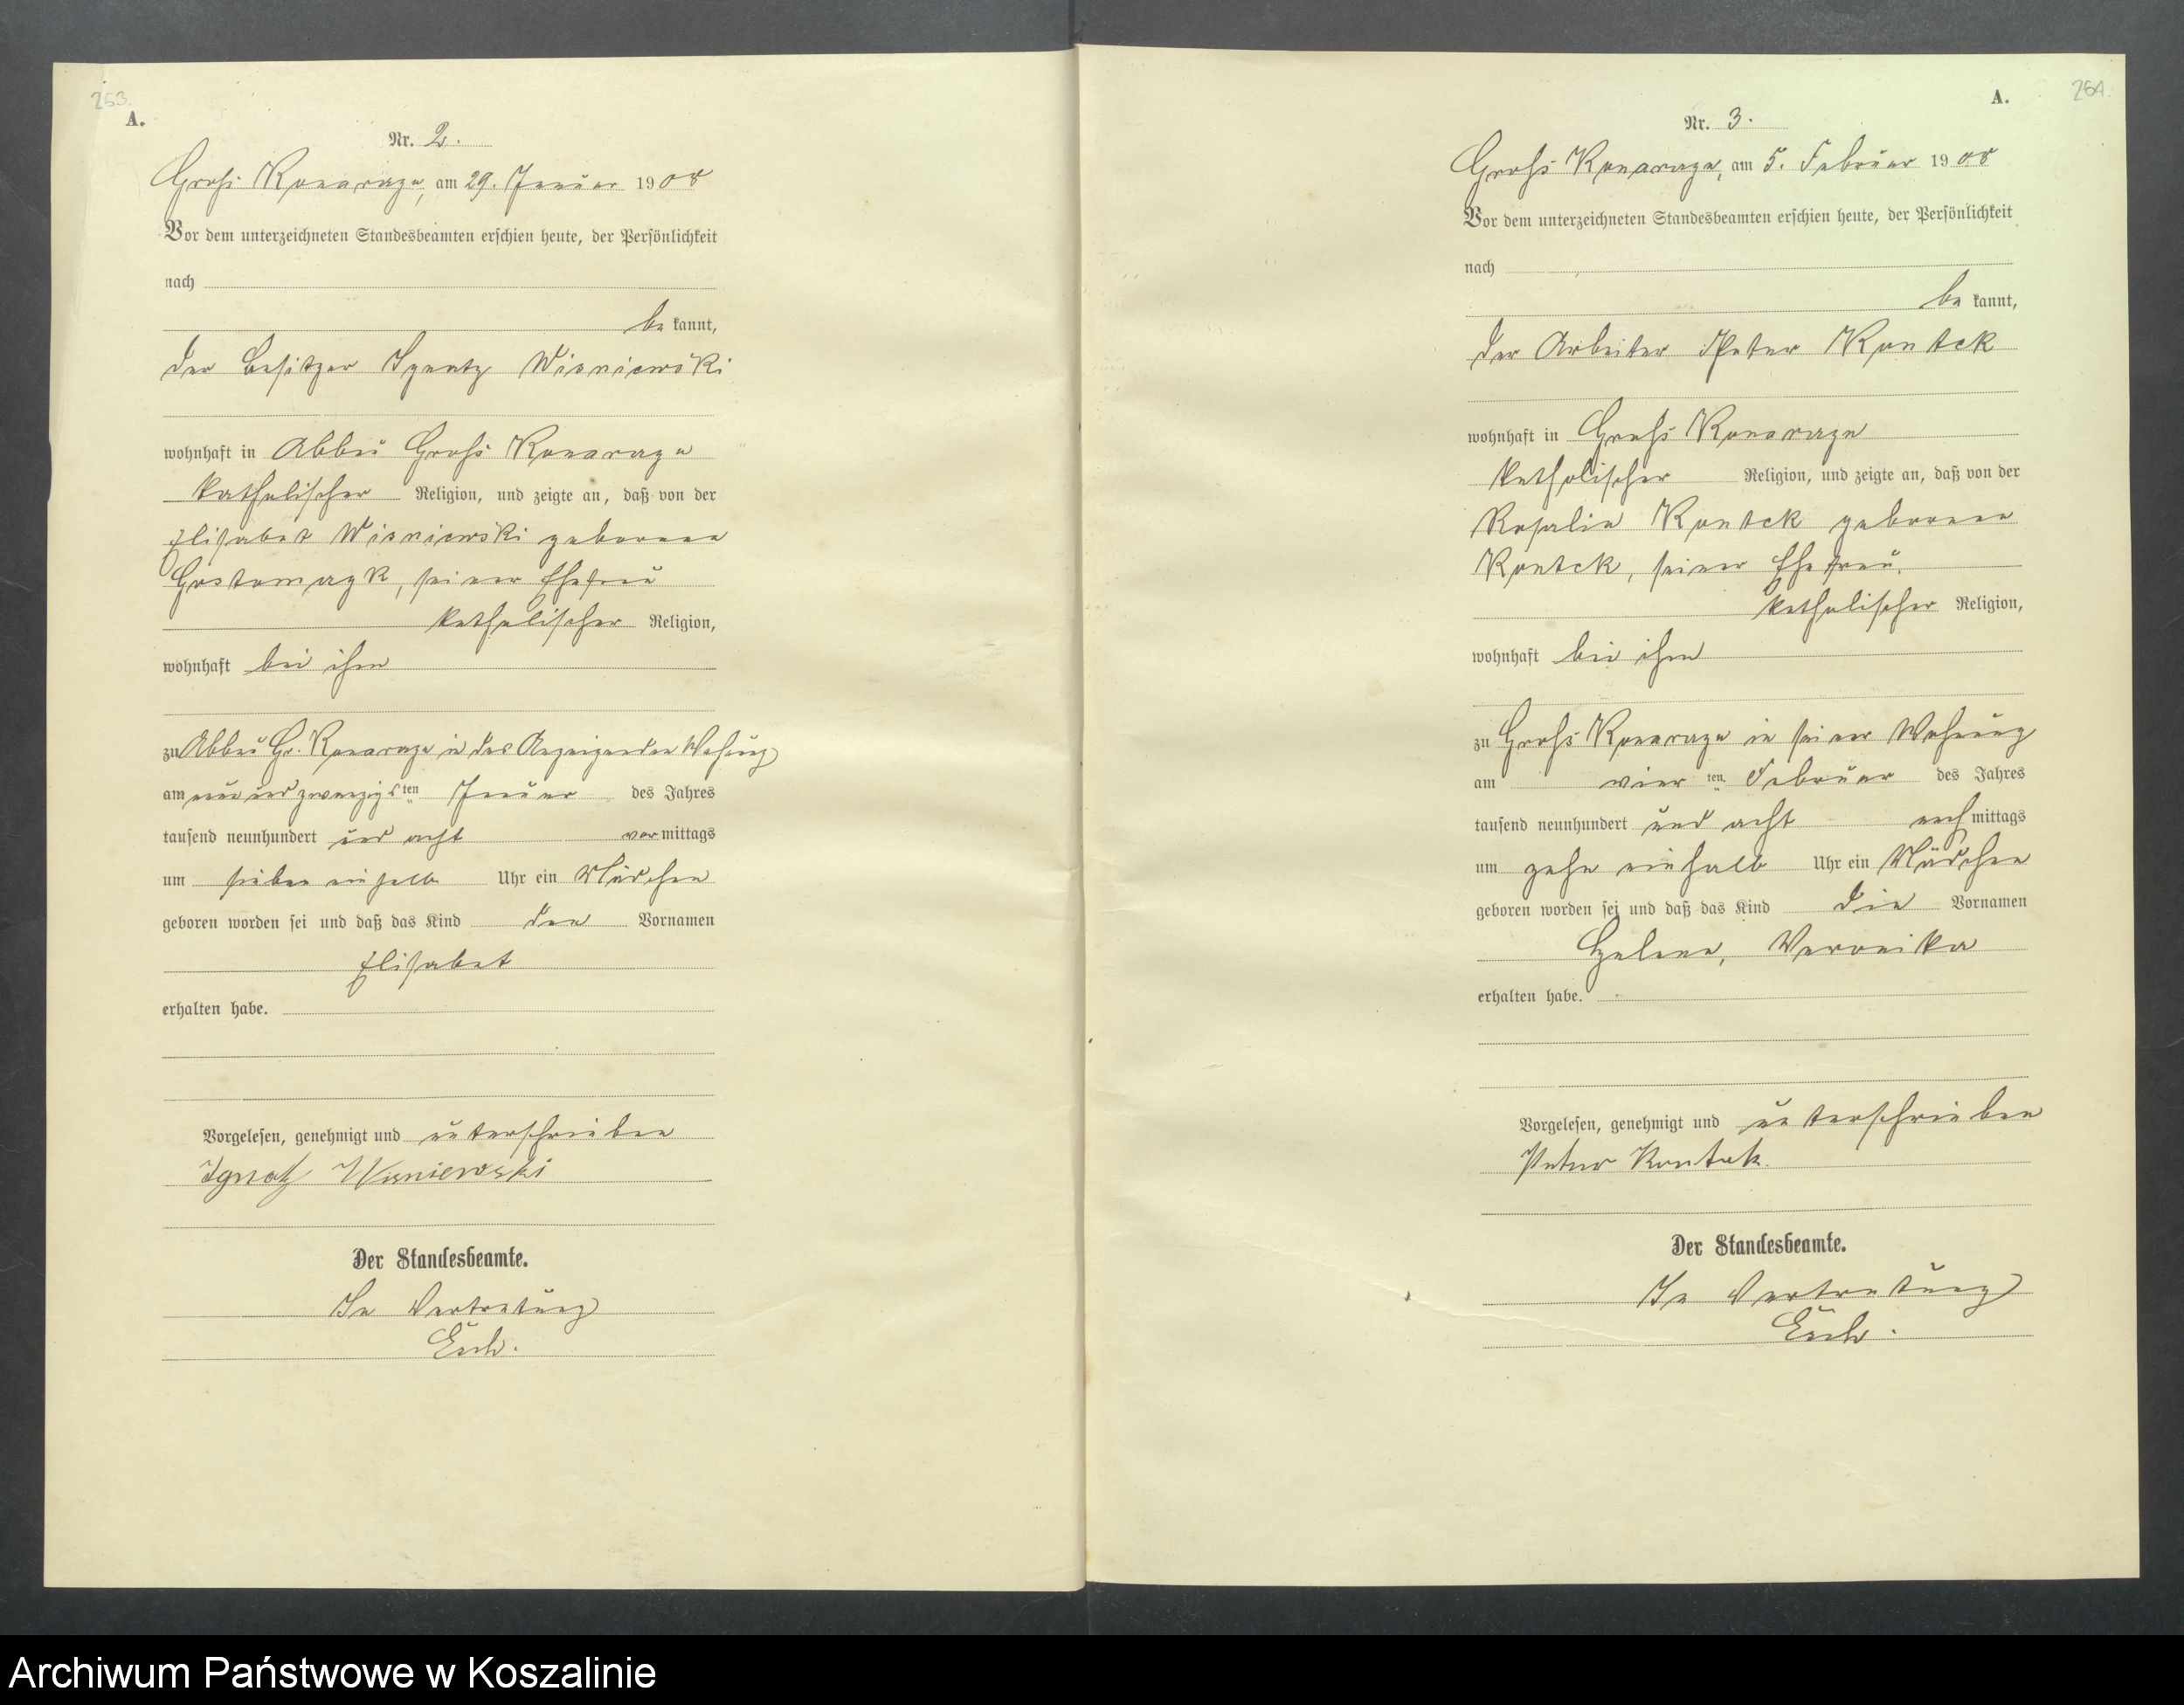 253.
A.
Nr. 2.
Groß Konarzyn, am 29. Januar 1908
Vor dem unterzeichneten Standesbeamten erschien heute, der Persönlichkeit
nach
be kannt,
der Besitzer Ignatz Wisniewski
wohnhaft in Abbau Groß Konarzyn
katholischer Religion, und zeigte an, daß von der
Elisabet Wisniewski geborene
Gostomzyk, seiner Ehefrau
katholischer Religion,
wohnhaft bei ihm
zu Abbau Gr. Konarzyn in des Anzeigenden Wohnung
am neunundzwanzigsten Januar des Jahres
tausend neunhundert und acht vormittags
um sieben einhalb Uhr ein Mädchen
geboren worden sei und daß das Kind den Vornamen
Elisabet
erhalten habe.
Vorgelesen, genehmigt und unterschrieben
Ignatz Wisniewski
Der Standesbeamte.
In Vertretung
264.
A.
Nr. 3.
Groß Konarzyn, am 5. Februar 1908
Vor dem unterzeichneten Standesbeamten erschien heute, der Persönlichkeit
nach
be kannt,
der Arbeiter Peter Kontek
wohnhaft in Groß Konarzyn
katholischer Religion, und zeigte an, daß von der
Rosalie Kontek geborene
Kontek, seiner Ehefrau.
katholischer Religion,
wohnhaft bei ihm
zu Groß Konarzyn in seiner Wohnung
am vierten Februar des Jahres
tausend neunhundert und acht nachmittags
um zehn einhalb Uhr ein Mädchen
geboren worden sei und daß das Kind die Vornamen
Helene, Veronika
erhalten habe.
Vorgelesen, genehmigt und unterschrieben
Peter Kontek.
Der Standesbeamte.
In Vertretung
Archiwum Państwowe w Koszalinie